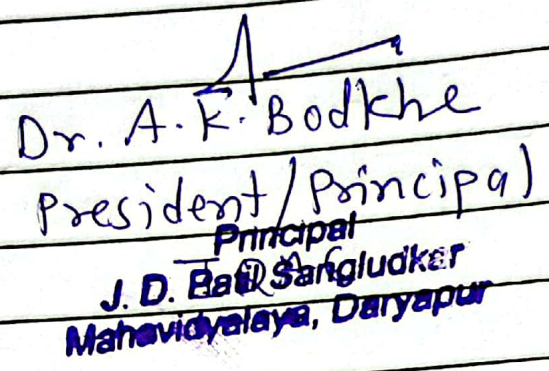 Dr. A. K. Bodkhe
President / Principal
Principal
J. D. Patil Sangludkar
Mahavidyalaya, Daryapur